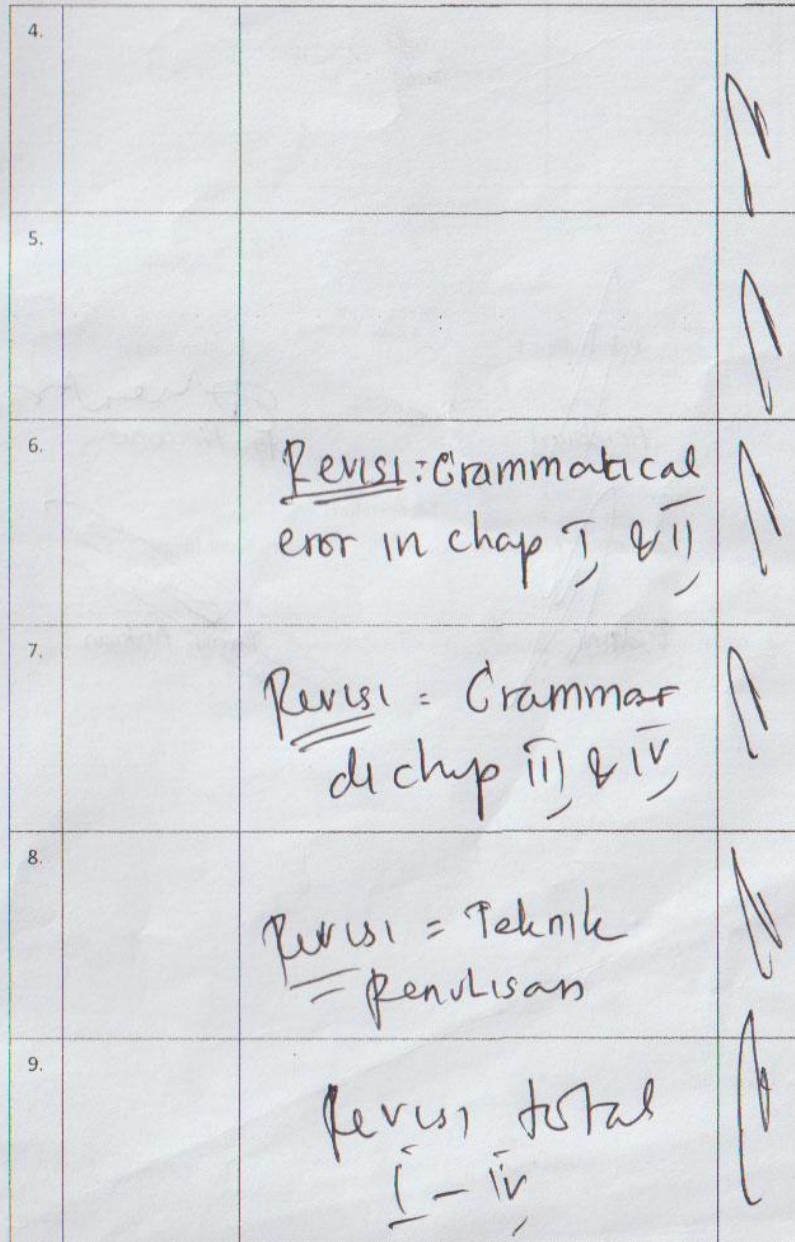 4.
5.
6.
Revisi : Grammatical
eror in chap I & II
7.
Revisi = Grammar
di chap III & IV
8.
Revisi = Teknik
penulisan
9.
Revisi total
I - IV